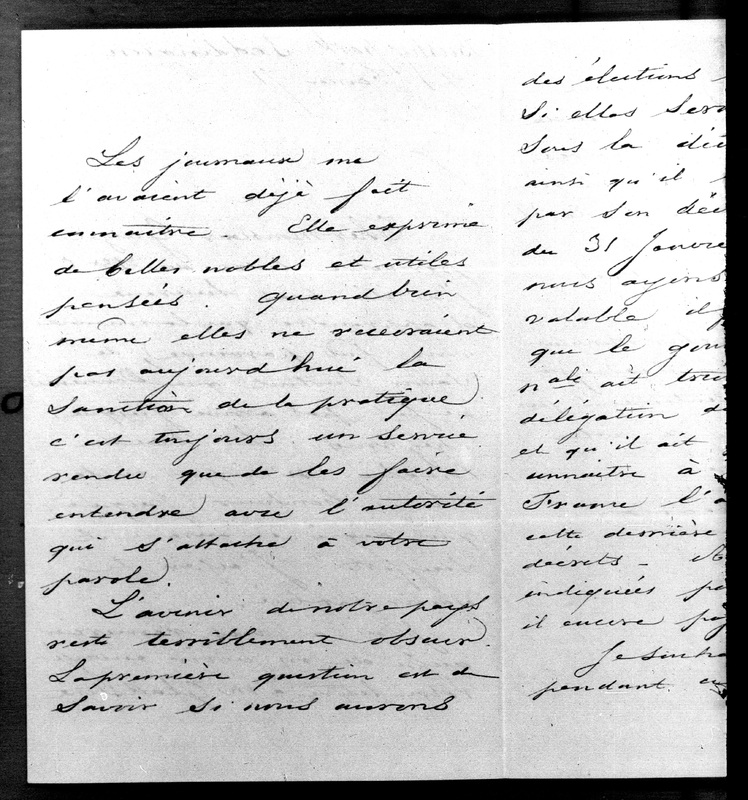 Les journaux me
l'avaient déjà fait
connaître Elle exprime
de belles nobles et utiles
pensées. quand bien
même elles ne recevraient
pas aujourd'hui la
sanction de la pratique
c'est toujours un service
rendu que de les faire
entendre avec l'autorité
qui s'attache à votre
parole.
L'avenir de notre pays
reste terriblement obscur.
La première question est de
savoir si nous aurons
des élections
Si elles
sous la
ainsi qu'il
par son
du 31 Janvie
nous ayons
valable
que le gou
nale ait
délégation
et qu'il ait
connaître à
France l'
cette dernière
décrets -
indiquées
il encore
Je
pendant